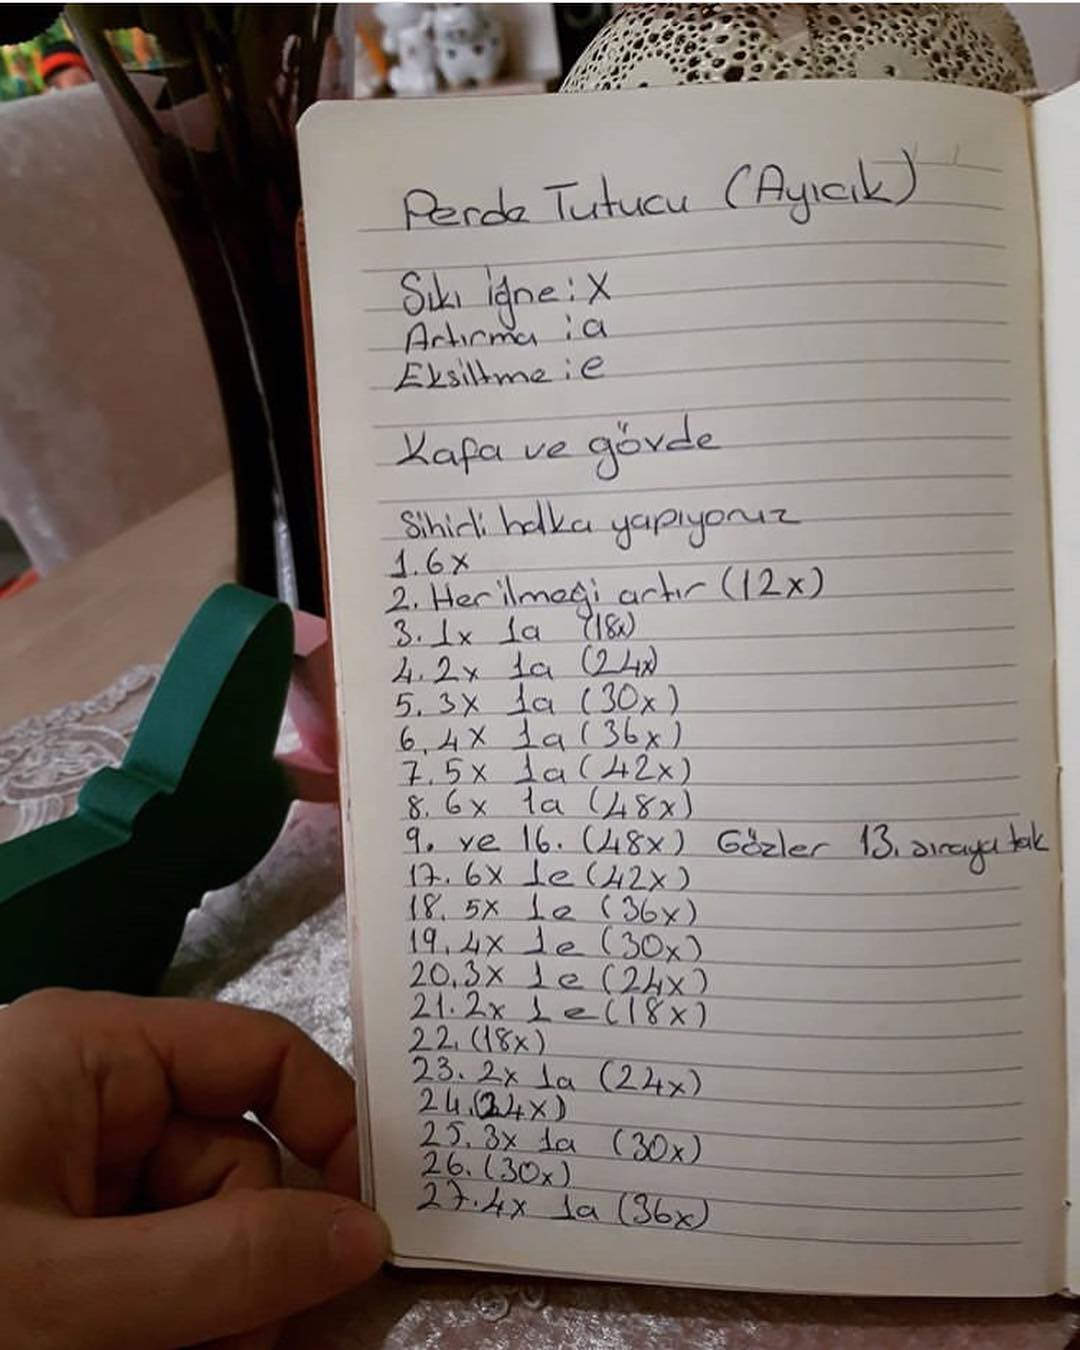 Perde Tutucu (Ayıcık)
Sıkı iğne : X
Artırma : a
Eksiltme : e
Kafa ve gövde
Sihirli halka yapıyoruz
1. 6x
2. Her ilmeği artır (12x)
3. 1x 1a (18x)
4. 2x 1a (24x)
5. 3x 1a (30x)
6. 4x 1a (36x)
7. 5x 1a (42x)
8. 6x 1a (48x)
9. ve 16. (48x) Gözler 13. sıraya tak
17. 6x 1e (42x)
18. 5x 1e (36x)
19. 4x 1e (30x)
20. 3x 1e (24x)
21. 2x 1e (18x)
22. (18x)
23. 2x 1a (24x)
24. (24x)
25. 3x 1a (30x)
26. (30x)
27. 4x 1a (36x)